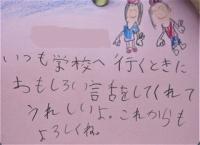 いつも学校へ行くときに
おもしろい話をしてくれて
うれしいよ。これからも
よろしくね。